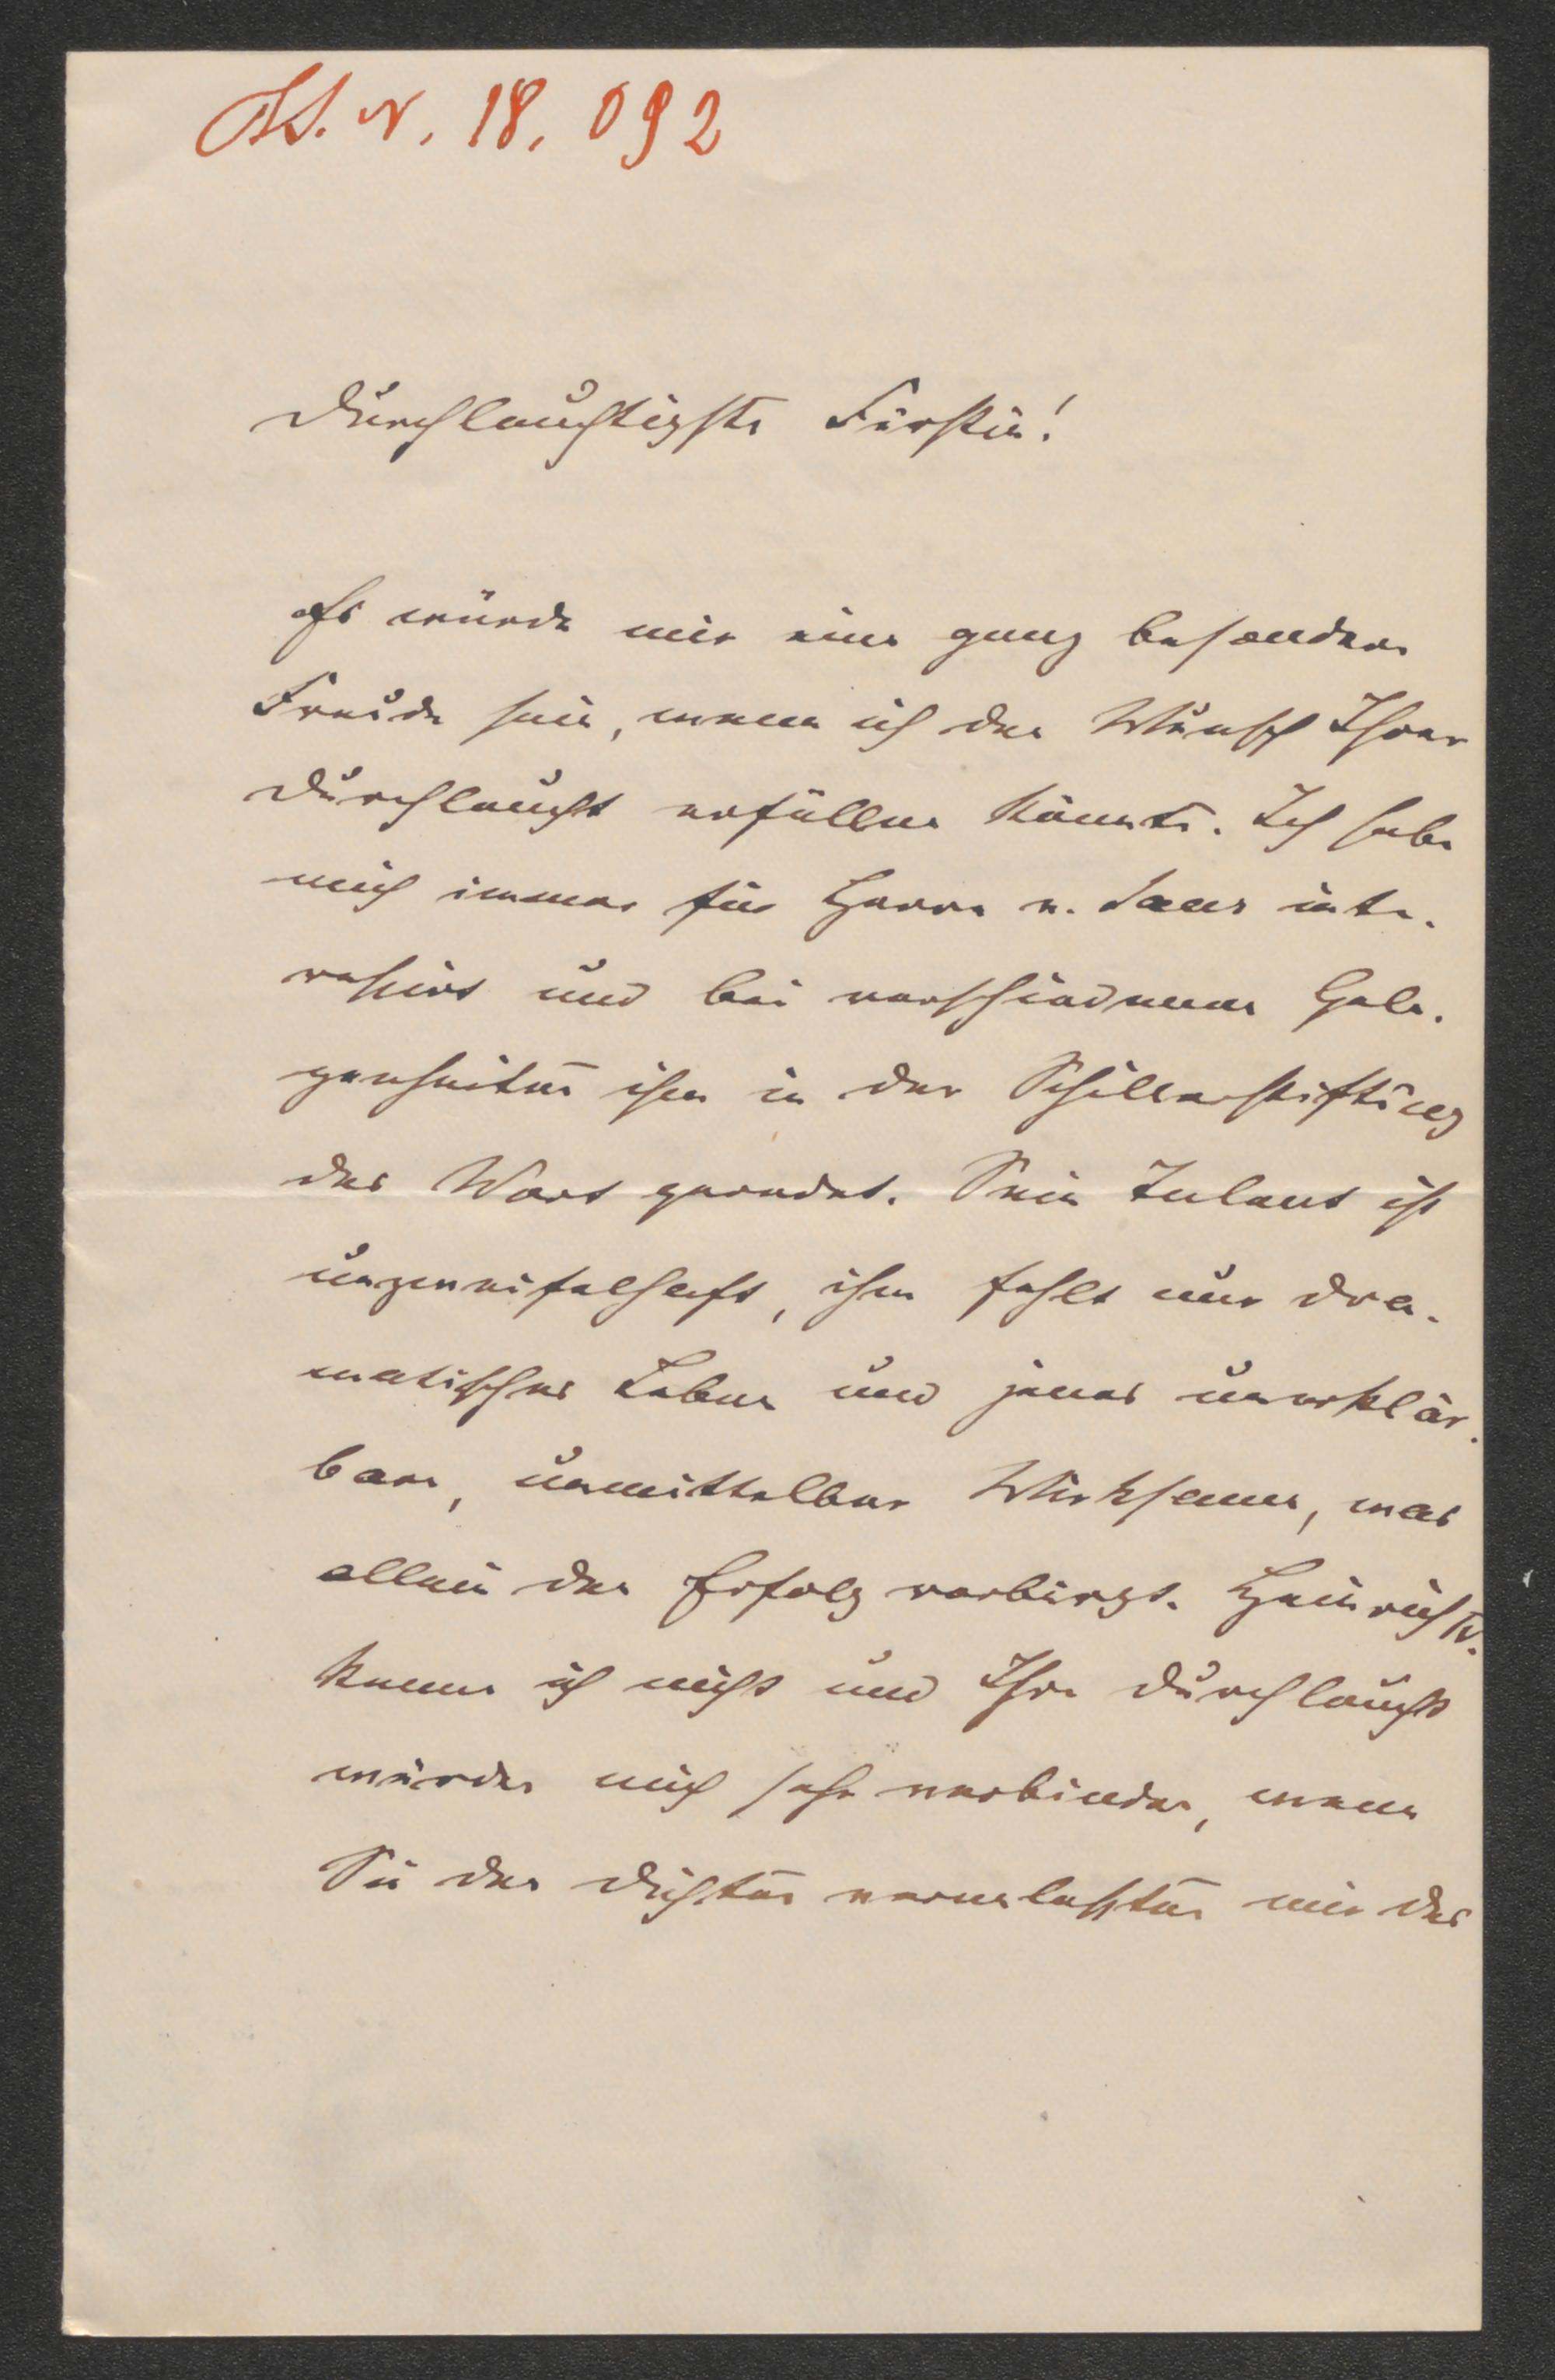 I. N. 18.092
Durchlauchtigste Fürstin!
Es würde mir eine ganz besondere
Freude sein, wenn ich den Wunsch Ihrer
Durchlaucht erfüllen könnte. Ich habe
mich immer für Herrn v. Saar inte-
ressirt und bei verschiedenen Gele-
genheiten ihm in der Schillerstiftung
das Wort geredet. Sein Talent ist
unzweifelhaft, ihm fehlt nur dra-
matisches Leben und jenes unerklär-
bare, unmittelbar Wirksame, was
allein den Erfolg verbürgt. Heinrich IV.
kenne ich nicht und Ihre Durchlaucht
würden mich sehr verbinden, wenn
Sie den Dichter veranlaßten mir das